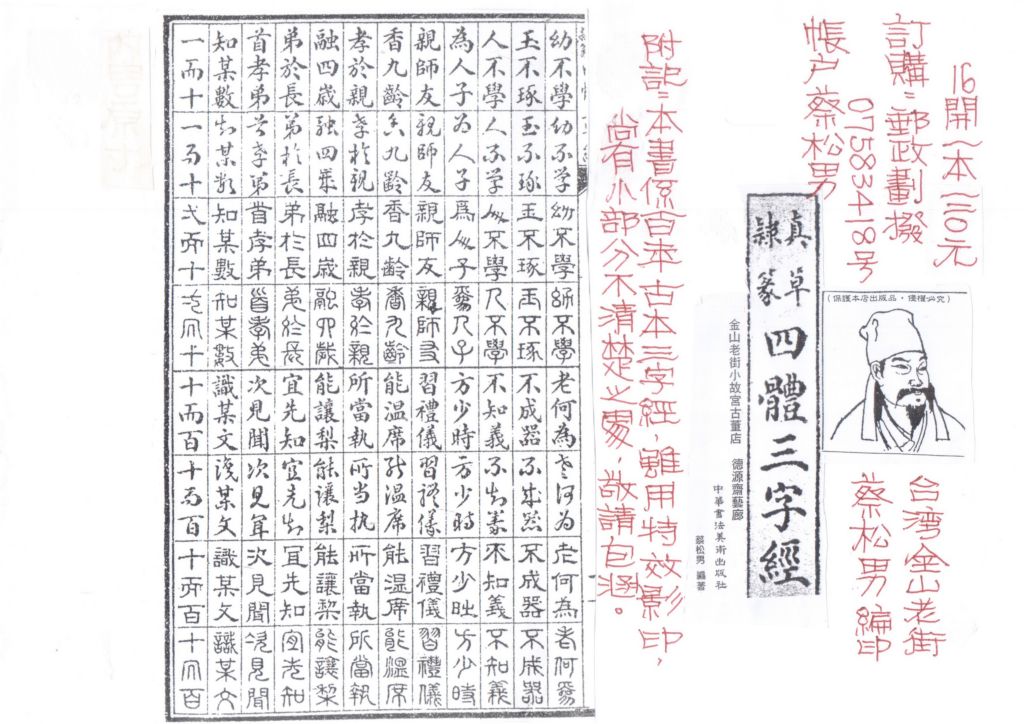 16開一本110元
訂購：郵政劃撥
07583418号
帳戶蔡松男
(保護本店出版品，侵權必究)
台湾金山老街
蔡松男編印
真草
隸篆
四體三字經
金山老街小故宮古董店 德源齋藝廊
中華書法美術出版社
蔡松男 編著
附記：本書係百年古本三字經，雖用特效影印，
尚有小部分不清楚之處，敬請包涵。
幼不學幼不学幼不學幼不學老何為老何为老何為老何爲
玉不琢玉不琢玉不琢玉不琢不成器不成器不成器不成器
人不學人不学人不學人不學不知義不知義不知義不知義
為人子为人子爲人子爲人子方少時方少時方少時方少時
親師友親師友親師友親師友習禮儀習禮儀習禮儀習禮儀
香九齡香九齡香九齡香九齡能温席能温席能温席能溫席
孝於親孝於親孝於親孝於親所當執所当执所當執所當執
融四歲融四歲融四歲融四歲能讓梨能讓梨能讓梨能讓梨
弟於長弟於長弟於長弟於長宜先知宜先知宜先知宜先知
首孝弟首孝弟首孝弟首孝弟次見聞次見聞次見聞次見聞
知某數知某數知某數知某數識某文識某文識某文識某文
一而十一而十弌而十弌而十十而百十而百十而百十而百